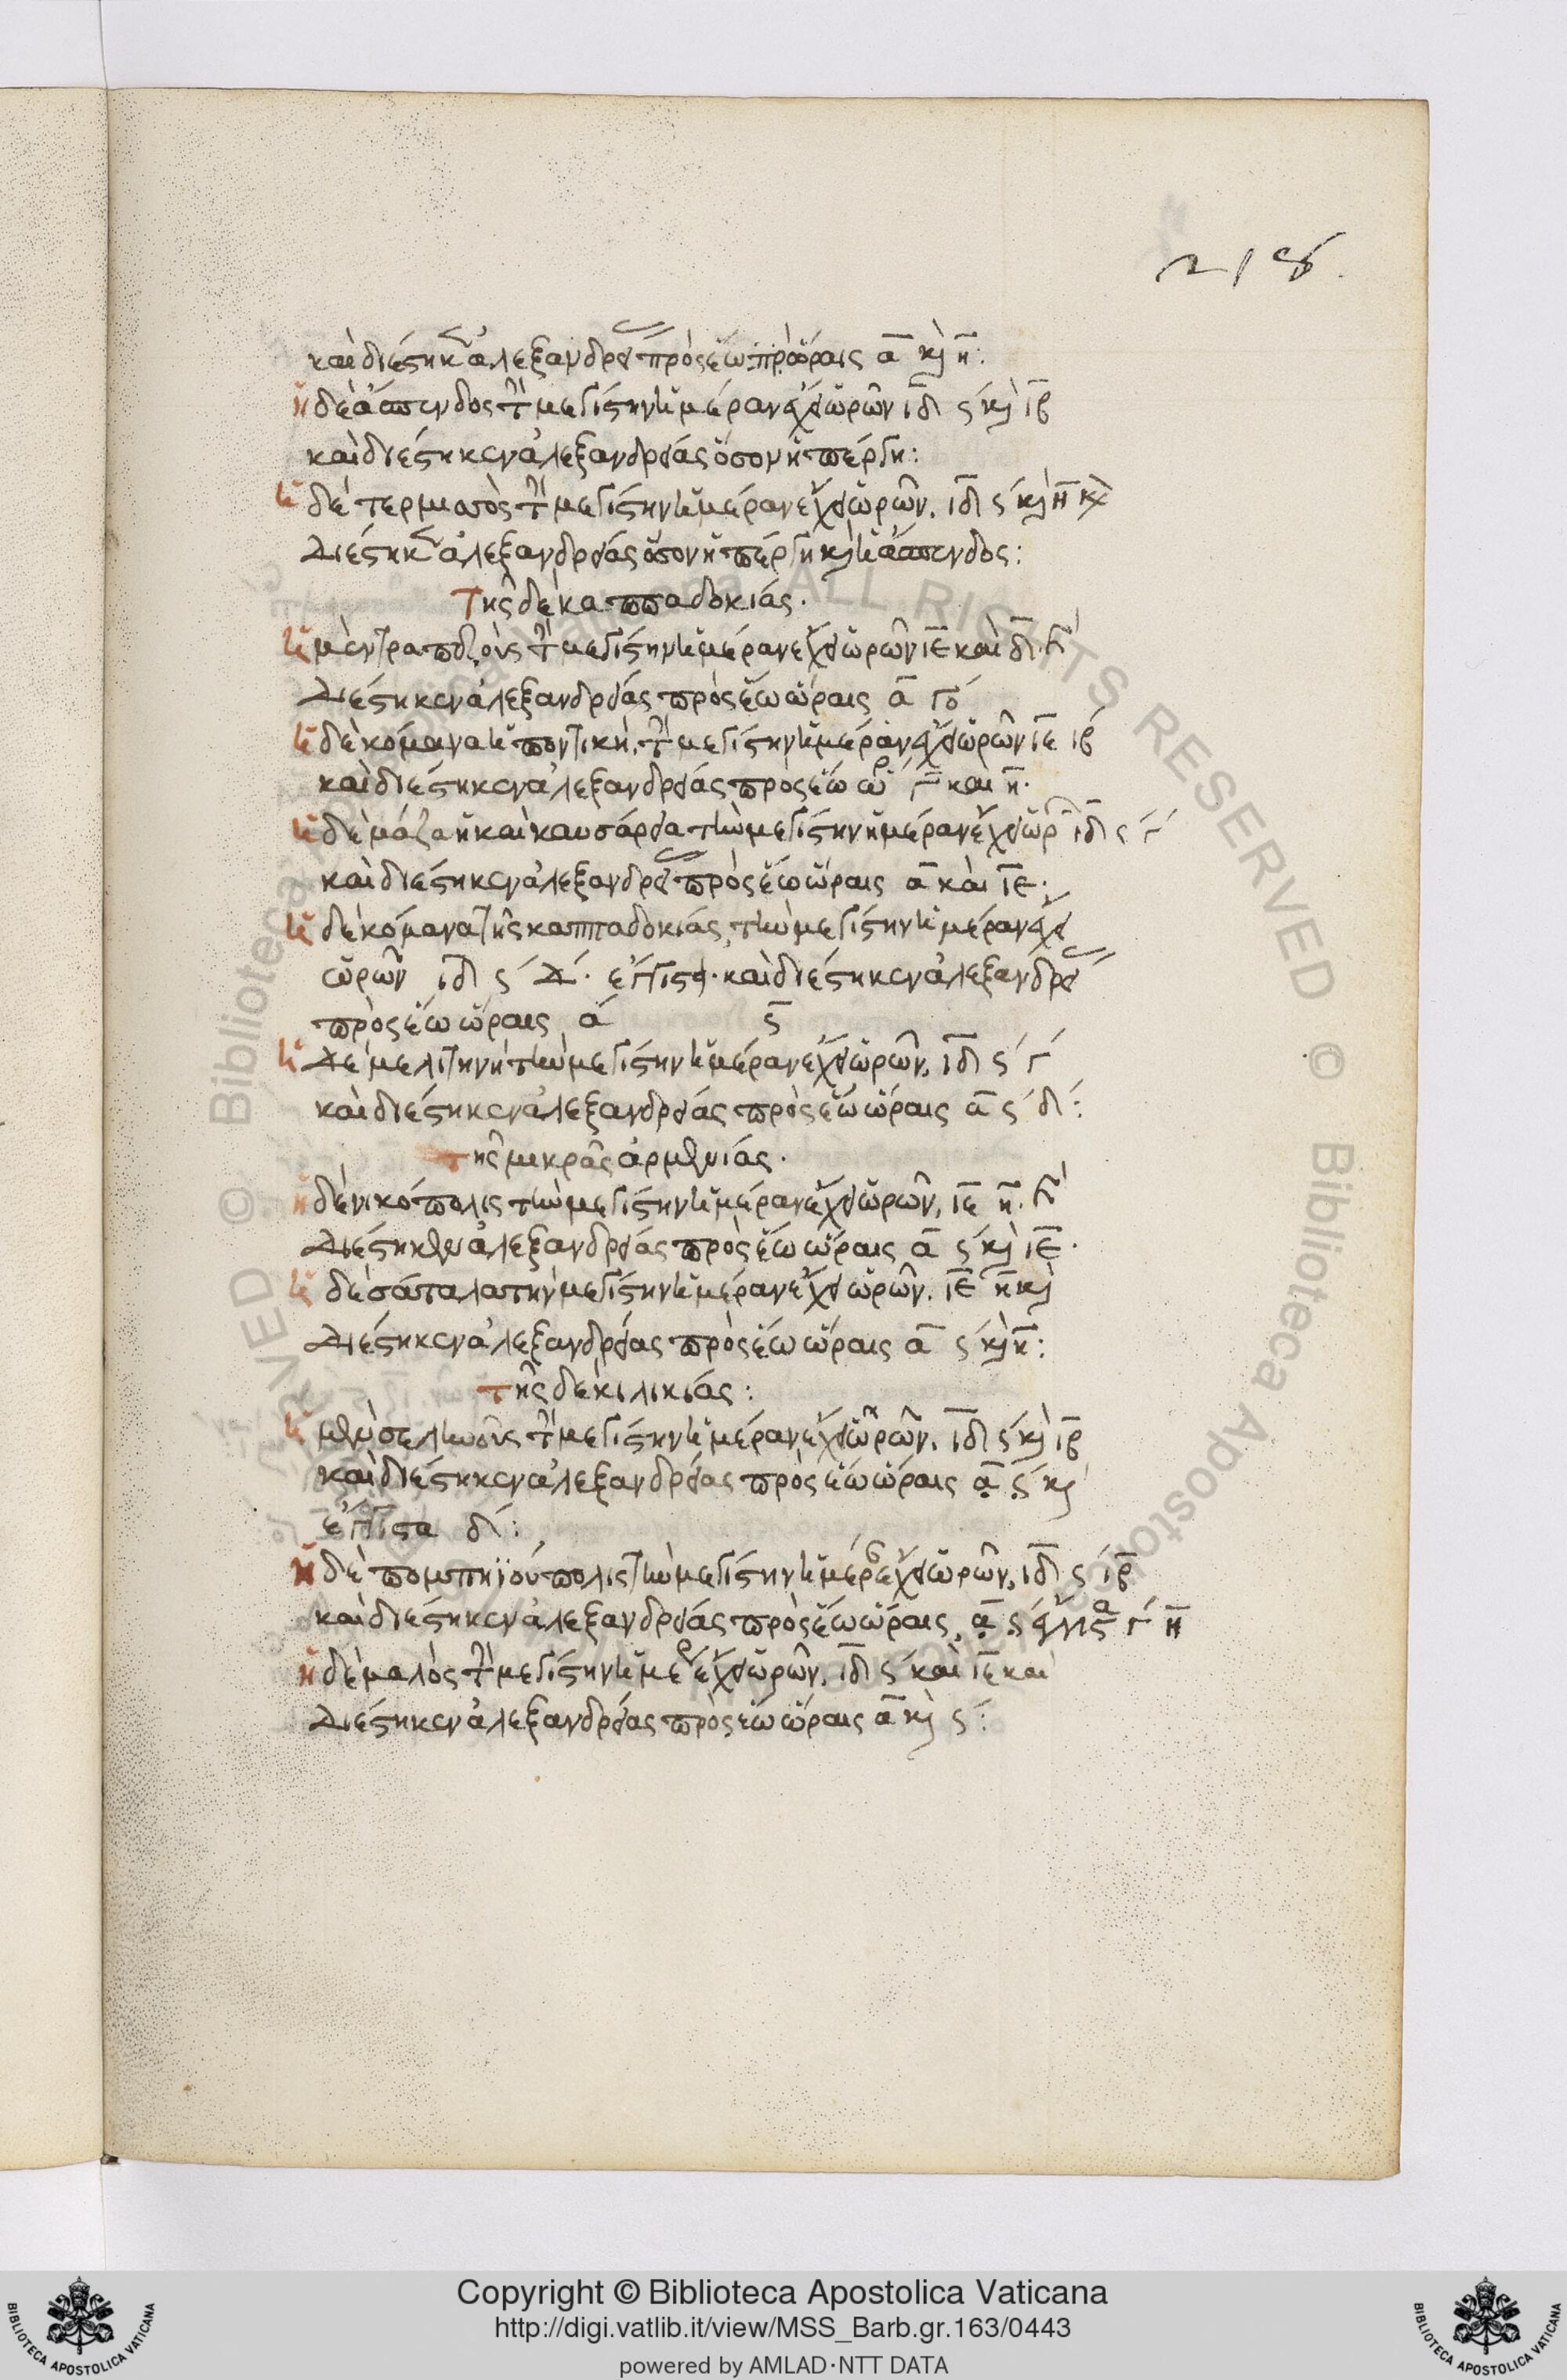 218.
καὶ διέστηκεν ἀλεξανδρείας πρὸς ἕω ὥραις α κὶ η:
ἡ δὲ ἄσπενδος τὴν μεγίστην ἡμέραν ἔχει ὡρῶν ιδ ς κὶ ιβ
καὶ διέστηκεν ἀλεξανδρείας ὅσον ἡ πέργη:
ἡ δὲ τερμισὸς τὴν μεγίστην ἡμέραν ἔχει ὡρῶν. ιδ ς κὶ η κὲ
διέστηκεν ἀλεξανδρείας ὅσον ἡ πέργη κὶ ἡ ἄσπενδος:
Τῆς δὲ καππαδοκίας.
ἡ μὲν τραπεζοὺς τὴν μεγίστην ἡμέραν ἔχει ὡρῶν ιε καὶ δ. κὶ
διέστηκεν ἀλεξανδρείας πρὸς ἕω ὥραις α γο
ἡ δὲ κόμανα ἡ ποντικὴ, τὴν μεγίστην ἡμέραν ἔχει ὡρῶν ιε ιβ
καὶ διέστηκεν ἀλεξανδρείας προς ἕω ὡρ γ καὶ η.
ἡ δὲ μάζα ἡ καὶ καισάρεια τὴν μεγίστην ἡμέραν ἔχει ὡρ ιδ ς γ
καὶ διέστηκεν ἀλεξανδρείας πρὸς ἕω ὥραις α καὶ ιε.
ἡ δὲ κόμανα τῆς καππαδοκίας τὴν μεγίστην ἡμέραν ἔχει
ὡρῶν ιδ ς δ. ἔγγιστα. καὶ διέστηκεν ἀλεξανδρείας
πρὸς ἕω ὥραις α ς
ἡ δὲ μελιτηνὴ τὴν μεγίστην ἡμέραν ἔχει ὡρῶν. ιδ ς γ
καὶ διέστηκεν ἀλεξανδρείας πρὸς ἕω ὥραις α ς δ:
τῆς μικρᾶς ἀρμενίας.
ἡ δὲ νικόπολις τὴν μεγίστην ἡμέραν ἔχει ὡρῶν. ιε η. κὶ
διέστηκεν ἀλεξανδρείας πρὸς ἕω ὥραις α ς κὶ ιε.
ἡ δὲ σάταλα τὴν μεγίστην ἡμέραν ἔχει ὡρῶν. ιε η κὶ
διέστηκεν ἀλεξανδρείας πρὸς ἕω ὥραις α ς κὶ η:
τῆς δὲ κιλικίας:
ἡ μὲν σελινοῦς τὴν μεγίστην ἡμέραν ἔχει ὡρῶν. ιδ ς κὶ ιβ
καὶ διέστηκεν ἀλεξανδρείας πρὸς ἕω ὥραις α ς κὶ
ἔγγιστα δ:
ἡ δὲ πομπηϊούπολις τὴν μεγίστην ἡμέραν ἔχει ὡρῶν. ιδ ς ιβ
καὶ διέστηκεν ἀλεξανδρείας πρὸς ἕω ὥραις α ς ἔγγιστα γ η
ἡ δὲ μαλὸς τὴν μεγίστην ἡμέραν ἔχει ὡρῶν. ιδ ς καὶ ιε καὶ
διέστηκεν ἀλεξανδρείας πρὸς ἕω ὥραις α κὶ ς:
© Biblioteca Apostolica Vaticana ALL RIGHTS RESERVED © Biblioteca Apostolica
BIBLIOTECA APOSTOLICA VATICANA
Copyright © Biblioteca Apostolica Vaticana
http://digi.vatlib.it/view/MSS_Barb.gr.163/0443
powered by AMLAD·NTT DATA
BIBLIOTECA APOSTOLICA VATICANA